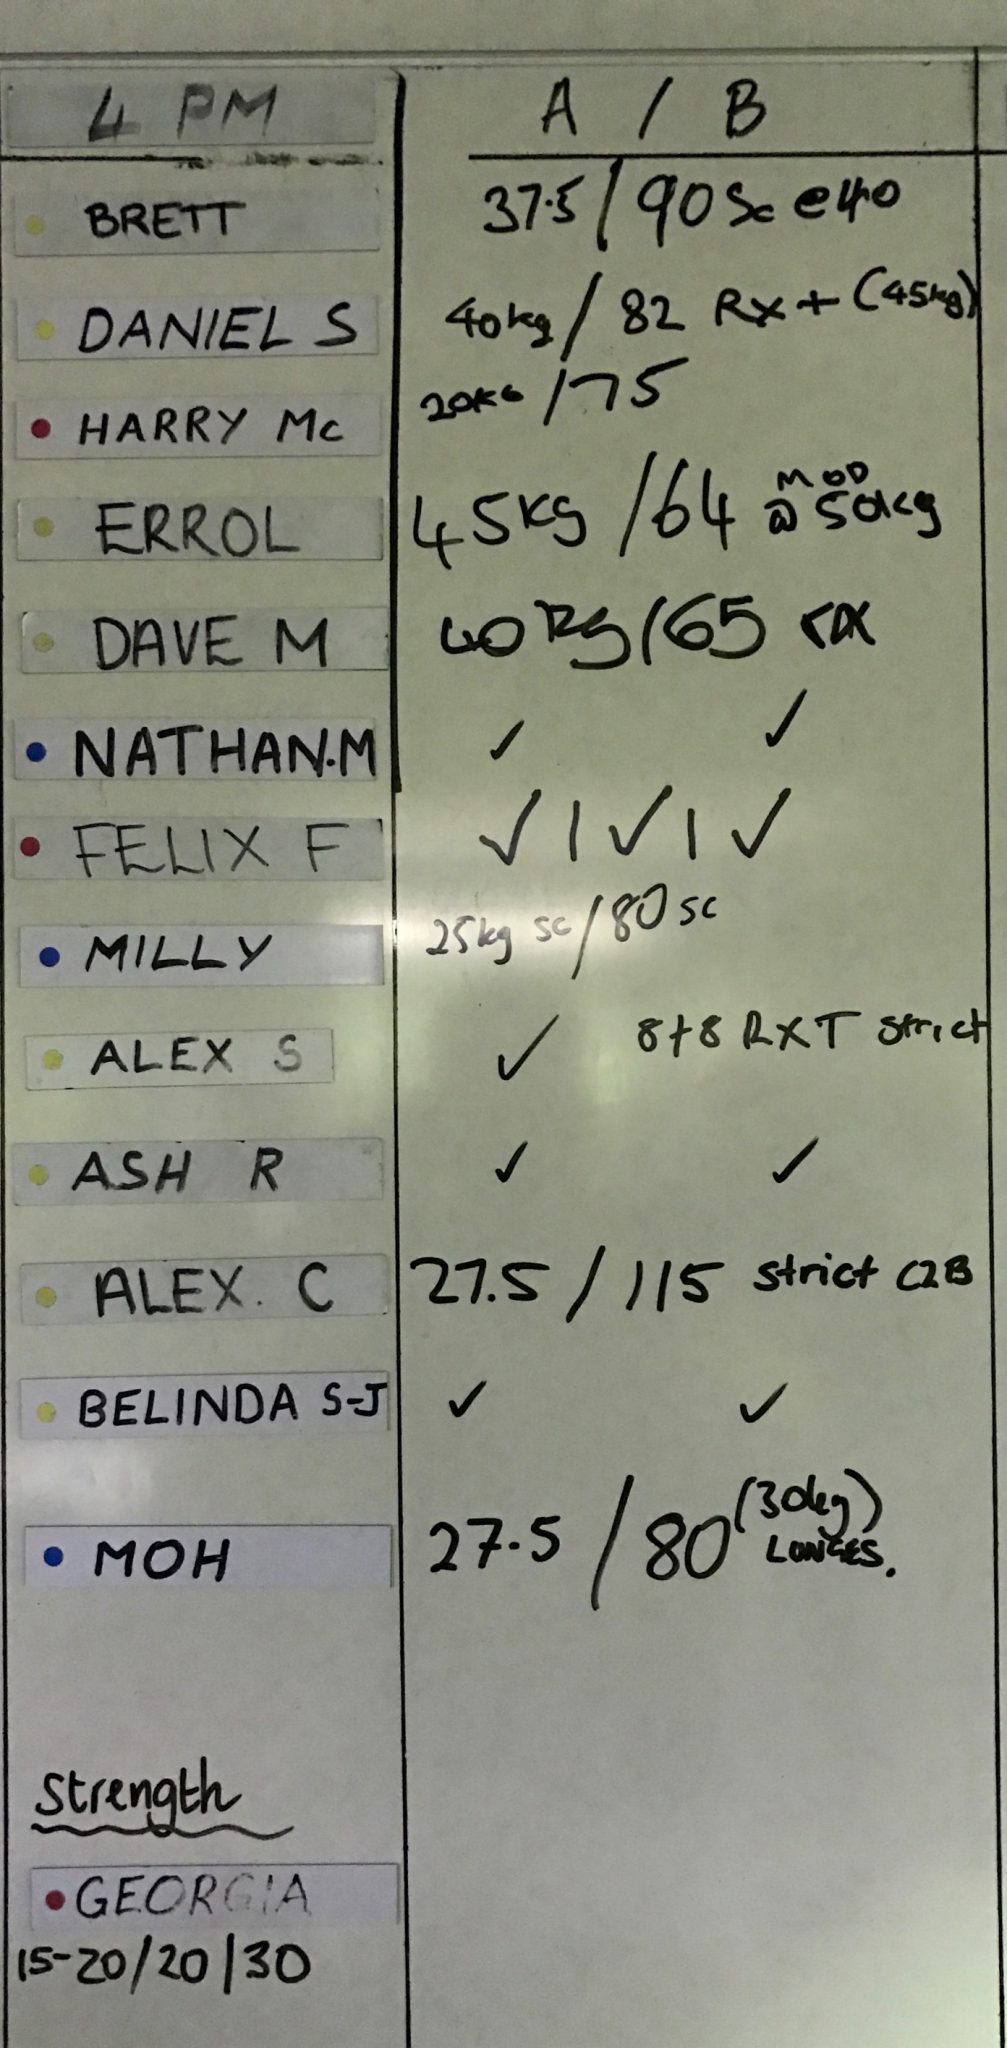 4 PM A / B
BRETT 37.5 / 90 Sc @40
DANIEL S 40kg / 82 RX + (45kg)
HARRY Mc 20KG / 75
ERROL 45kg / 64 MOD @ 50kg
DAVE M 40kg / 65 rx
NATHAN.M ✓ ✓
FELIX F ✓ | ✓ | ✓
MILLY 25kg sc / 80 sc
ALEX S ✓ 8+8 RXT strict
ASH R ✓ ✓
ALEX. C 27.5 / 115 strict C2B
BELINDA S-J ✓ ✓
MOH 27.5 / 80 (30kg)
LUNGES.
Strength
GEORGIA
15-20/20/30